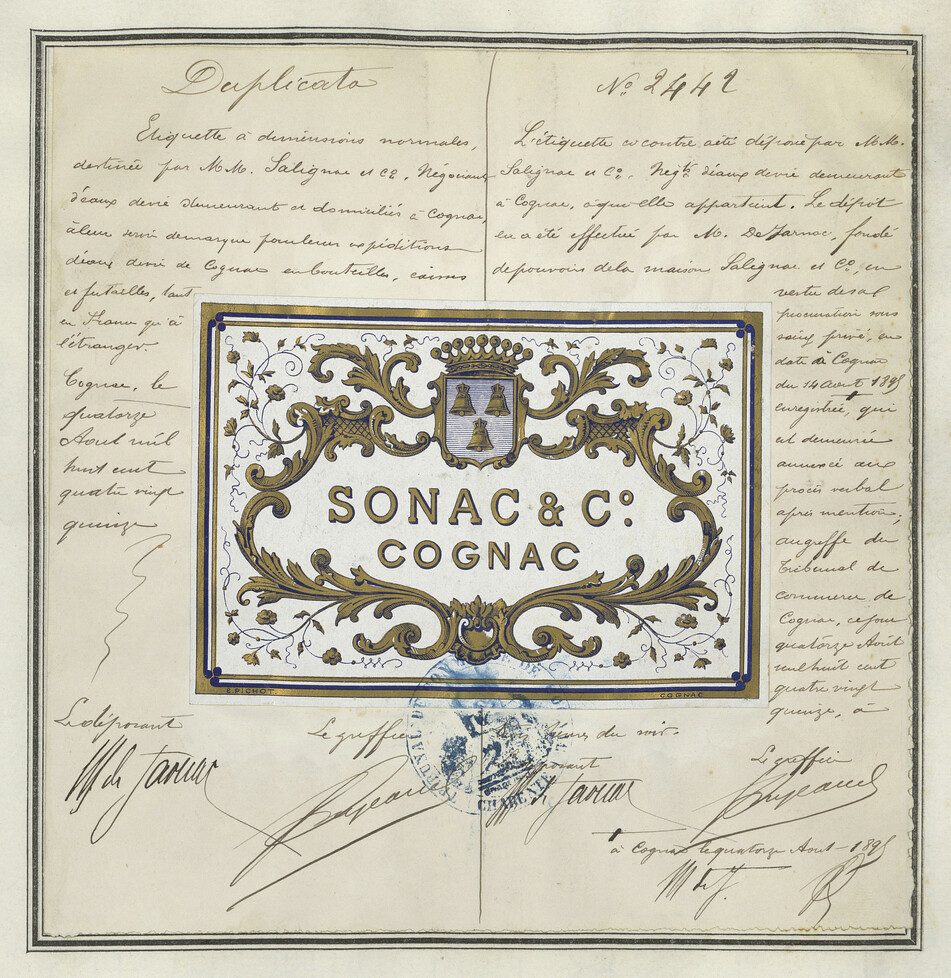 Duplicata
Etiquette à dimensions normales,
destinée par M.M. Salignac et Cº, Négociants
d'eaux de vie demeurant et domiciliés à Cognac,
à leur servir de marque pour leurs expéditions
d'eaux de vie de Cognac en bouteilles, caisses
et futailles, tant
en France qu'à
l'étranger.
Cognac, le
quatorze
Août mil
huit cent
quatre vingt
quinze
Nº 2442
L'étiquette ci contre a été déposée par M.M.
Salignac et Cº, Negts d'eaux de vie demeurant
à Cognac, à qui elle appartient. Le dépôt
en a été effectué par M. De Jarnac, fondé
de pouvoirs de la maison Salignac et Cº, en
vertu de sa
procuration sous
seing privé, en
date à Cognac
du 14 Août 1895
enregistrée, qui
est demeurée
annexée au
procès verbal
après mention,
au greffe du
Tribunal de
commerce de
Cognac, ce jour
quatorze Août
mil huit cent
quatre vingt
quinze, à
heures du soir.
SONAC & Cº.
COGNAC
E. PICHOT
COGNAC
Le déposant
Le greffier
M de Jarnac
déposant
M de Jarnac
Le greffier
CHARENTE
à Cognac le quatorze Août 1895
M de J.